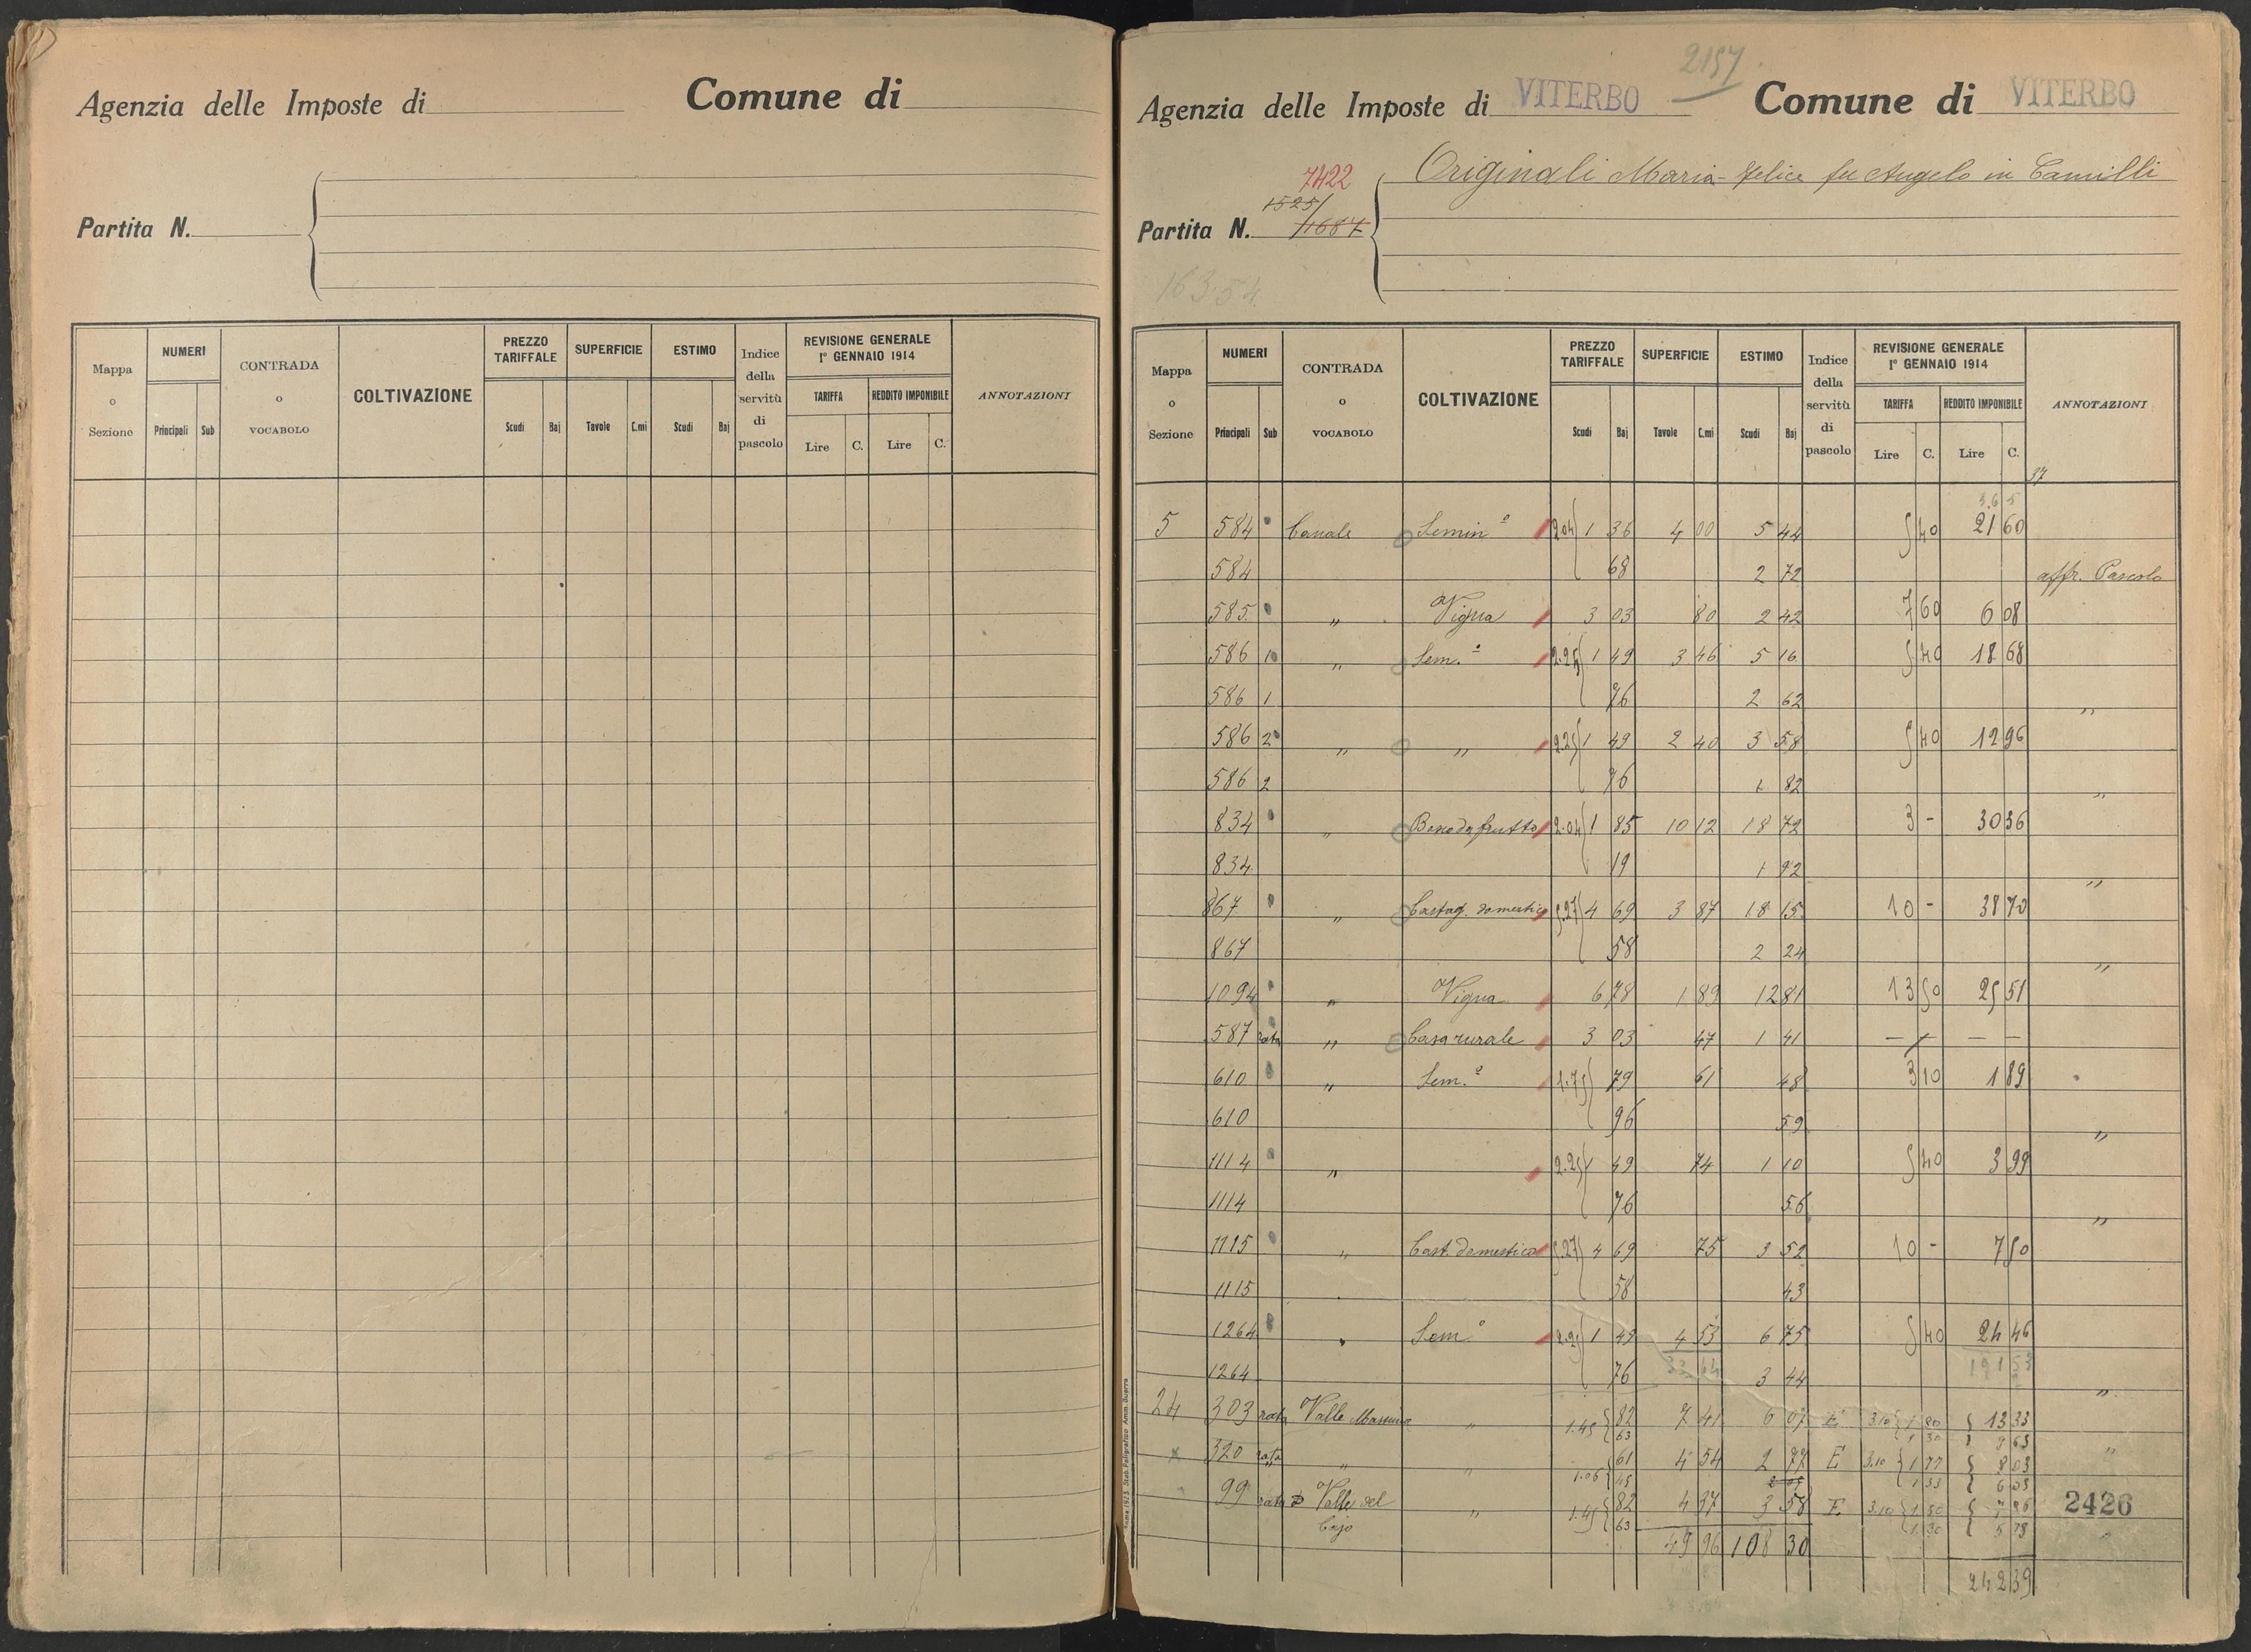 Agenzia delle Imposte di
Comune di
Partita N.
Mappa o Sezione
NUMERI
Principali Sub
CONTRADA o VOCABOLO
COLTIVAZIONE
PREZZO TARIFFALE
Scudi Baj
SUPERFICIE
Tavole C.mi
ESTIMO
Scudi Baj
Indice della servitù di pascolo
REVISIONE GENERALE
1° GENNAIO 1914
TARIFFA REDDITO IMPONIBILE
Lire C. Lire C.
ANNOTAZIONI
2157
Agenzia delle Imposte di VITERBO Comune di VITERBO
7422
1525/
Partita N. 11687
Originali Maria-Felice fu Angelo in Camilli
163.54
Mappa o Sezione
NUMERI
Principali Sub
CONTRADA o VOCABOLO
COLTIVAZIONE
PREZZO TARIFFALE
Scudi Baj
SUPERFICIE
Tavole C.mi
ESTIMO
Scudi Baj
Indice della servitù di pascolo
REVISIONE GENERALE
1° GENNAIO 1914
TARIFFA REDDITO IMPONIBILE
Lire C. Lire C.
ANNOTAZIONI
37
5 584 Canale Semin° 2.04 1 36 4 00 5 44 5 40 21 60
584 68 2 72 affr. Pascolo
585 " Vigna 3 03 80 2 42 7 60 6 08
586 1 " Sem.° 2.25 1 49 3 46 5 16 5 40 18 68
586 1 76 2 62 "
586 2 " " 2.25 1 49 2 40 3 58 5 40 12 96
586 2 76 1 82 "
834 " Bosco da frutto 2.04 1 85 10 12 18 72 3 - 30 36
834 19 1 92 "
867 " Castag. domestico 5.27 4 69 3 87 18 15 10 - 38 70
867 58 2 24 "
1094 " Vigna 6 78 1 89 12 81 13 50 25 51
587 rata " Casa rurale 3 03 47 1 41 — — —
610 " Sem.° 1.75 79 61 48 3 10 1 89
610 96 59 "
1114 " 2.25 1 49 74 1 10 5 40 3 99
1114 76 56 "
1115 " Cast. domestico 5.27 4 69 75 3 52 10 - 7 50
1115 58 43
1264 " Sem° 2.25 1 49 4 53 6 75 5 40 24 46
1264 76 33 64 3 44 191 53 "
24 303 rata Valle " 1.45 82 7 41 6 07 E 3.10 1 80 13 33
63 1 30 9 63
320 rata " " 1.06 61 4 54 2 77 E 3.10 1 77 8 03 "
45 1 33 6 03
99 rata Valle del " 1.45 82 4 37 3 58 E 3.10 1 80 7 86 2426
63 1 30
49 96 108 30
242 39
Roma 1923. Stab. Poligrafico Amm. Guerra